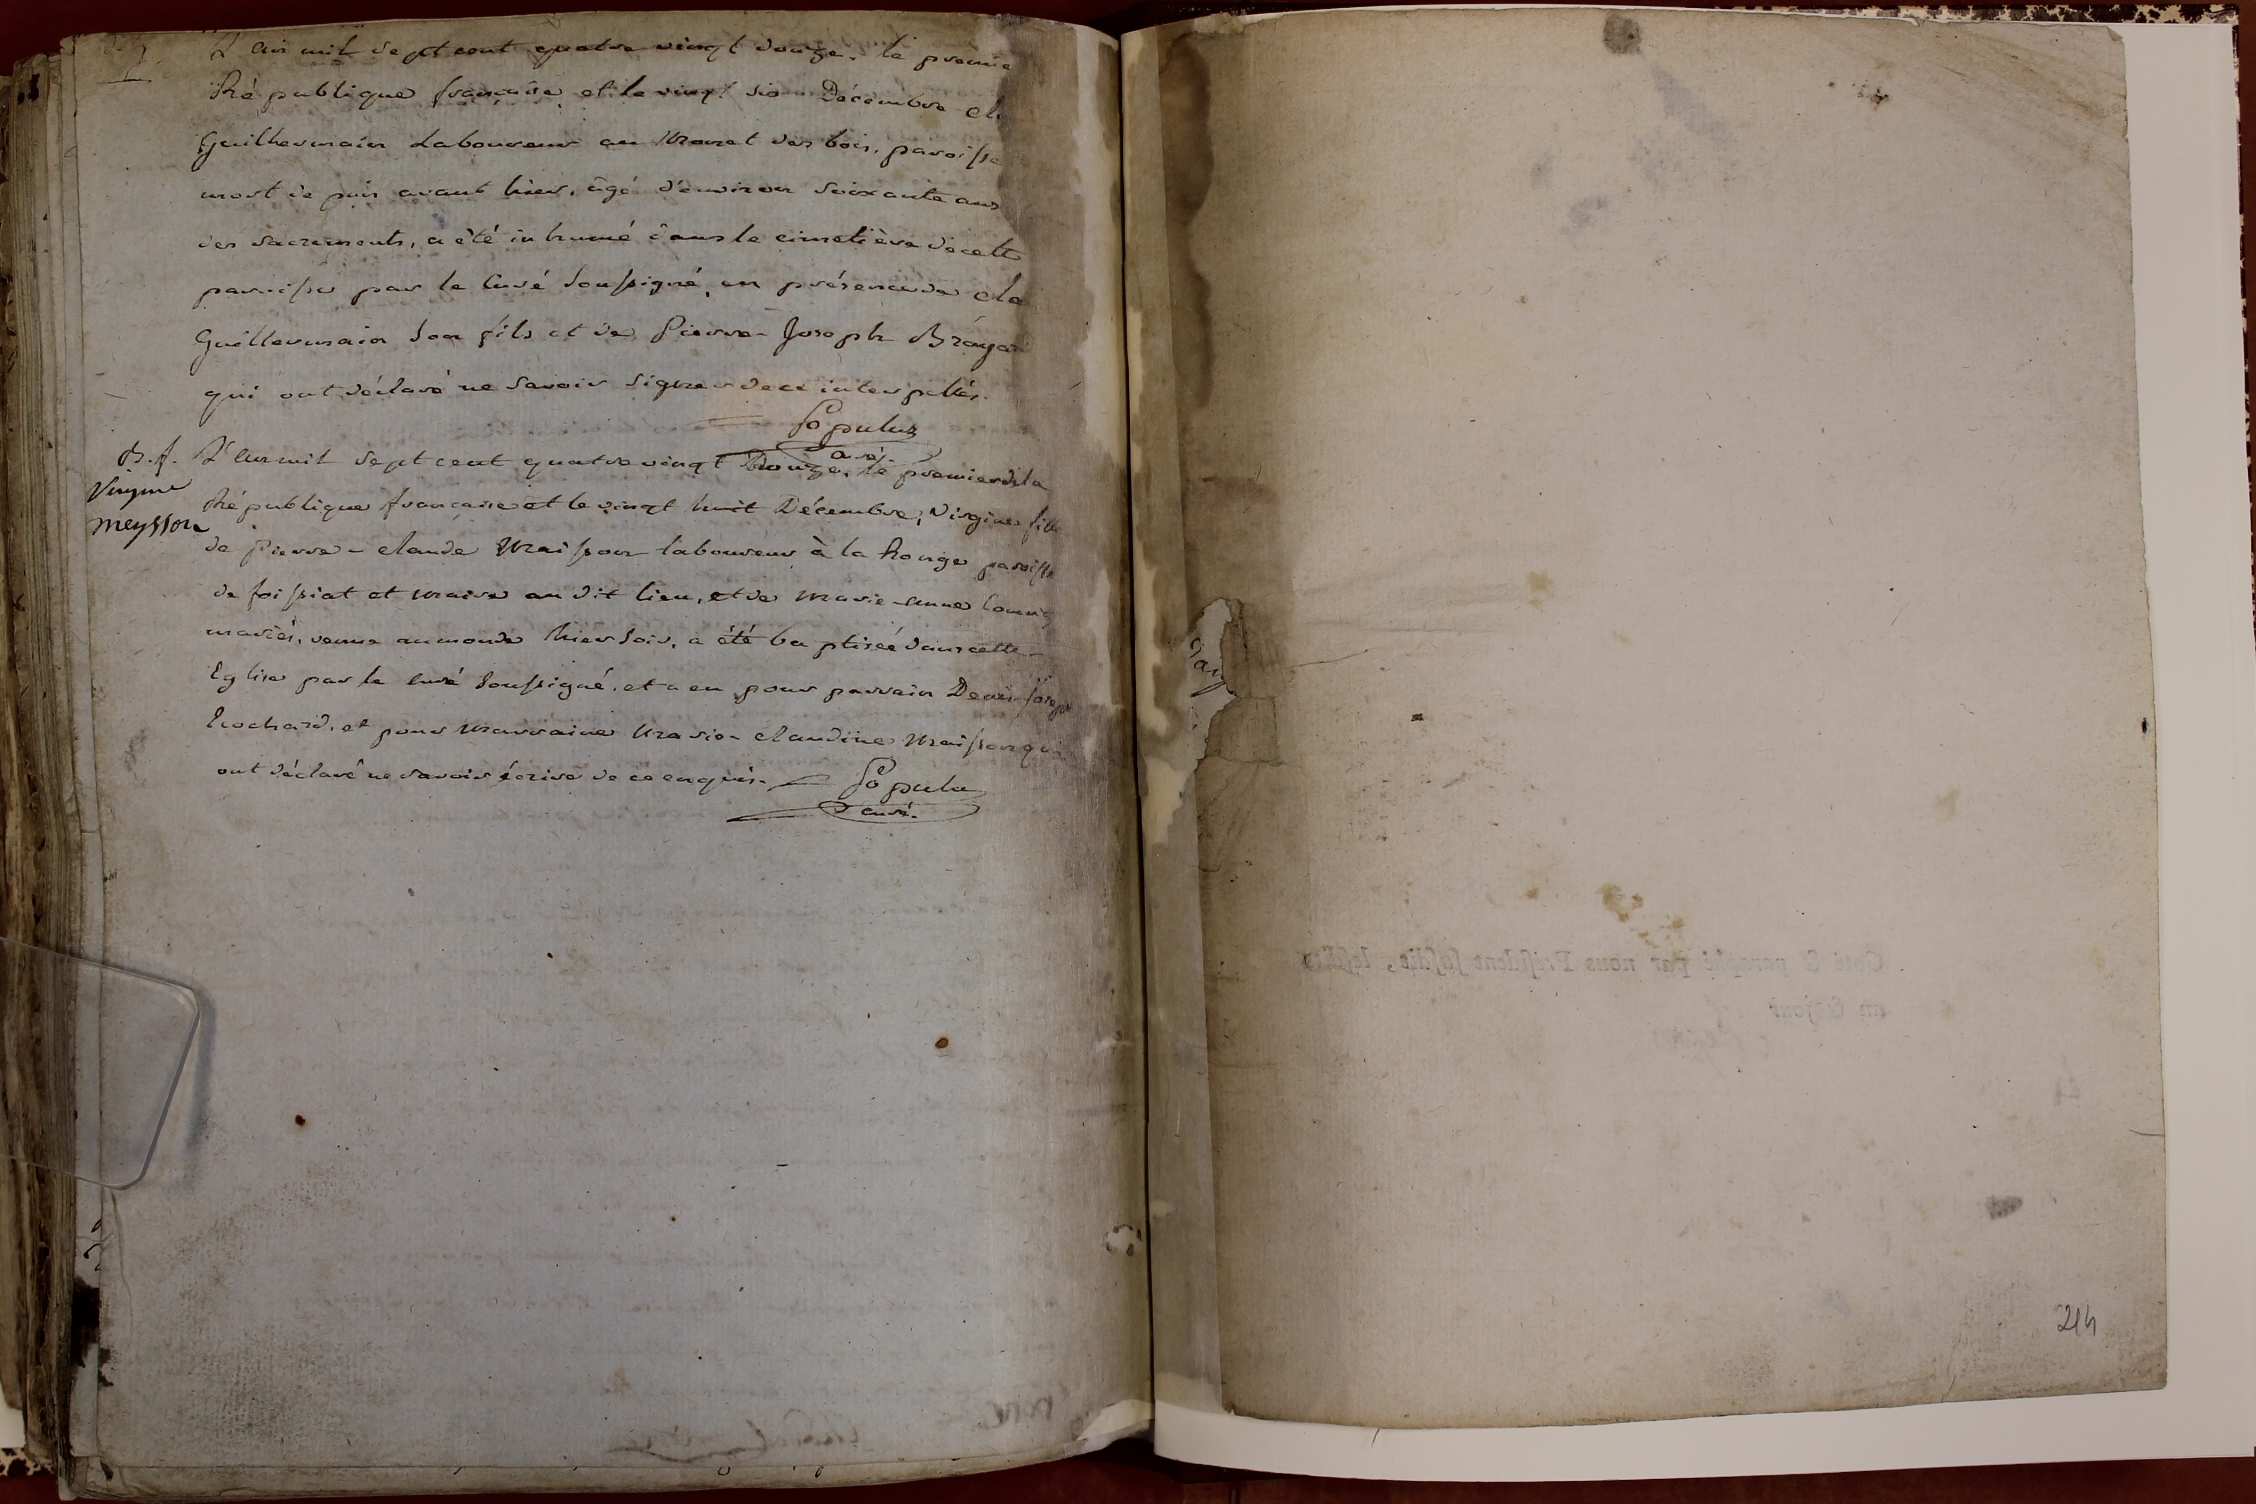 L'an mil sept cent quatre vingt douze, le premie
République française et le vingt six Décembre cl
Guilhermain Laboureur au Monet des bois, paroisse
mort depuis avant hier, âgé d'environ soixante ans
des sacrements, a été inhumé dans le cimetière de cette
paroisse par le Curé soussigné, en présence de cla
Guillermain son fils et de Pierre-Joseph
qui ont déclaré ne savoir signer de ce interpellés.
Populus
curé.
B. f.
Virgine
meysson
L'an mil sept cent quatre vingt Douze, le premier de la
République française et le vingt huit Décembre, Virgine fille
de Pierre-claude Maisson laboureur à la Rouge paroisse
de foissiat et maire au dit lieu, et de Marie-Anne
mariés, venue au monde hier soir, a été baptisée dans cette
Eglise par le curé soussigné, et a eu pour parrain Denis-Joseph
Ecochard, et pour marraine Marie-claudine Maisson qui
ont déclaré ne savoir écrire de ce enquis.
Populu
curé.
Coté & paraphé par nous Président susdit, lesdits
an & jour
214